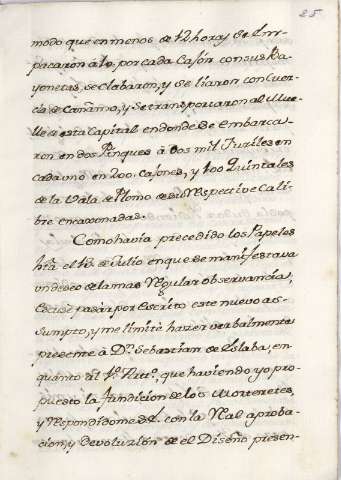 25
modo que en menos de 12 horas se Em-
pacaron à 10. por cada Cajón con sus Ba-
yonetas, se Clabaron, y se liaron con Cuer-
da de Cañamo, y se transportaron al Mue-
lle de esta Capital en donde se embarca-
ron en dos Pinques à dos mil Fusiles en
cada uno en 200. cajones, y 100 Quintales
de la Bala de Plomo de su respective Cali-
bre encaxonadas.
Como havia precedido los Papeles
hta el 18. de Julio en que se manifestava
un deseo de la mas Regular observancia,
Escusé pasar por Escrito este nuevo as-
sumpto, y me limité hazer verbalmente
presente à Dn. Sebastian de Eslaba, en
quanto al 1o. Arto., que haviendo yo pro-
puesto la fundicion de los Morteretes,
y respondidome del. con la Real aproba-
cion, y devoluzion de el Diseño presen-